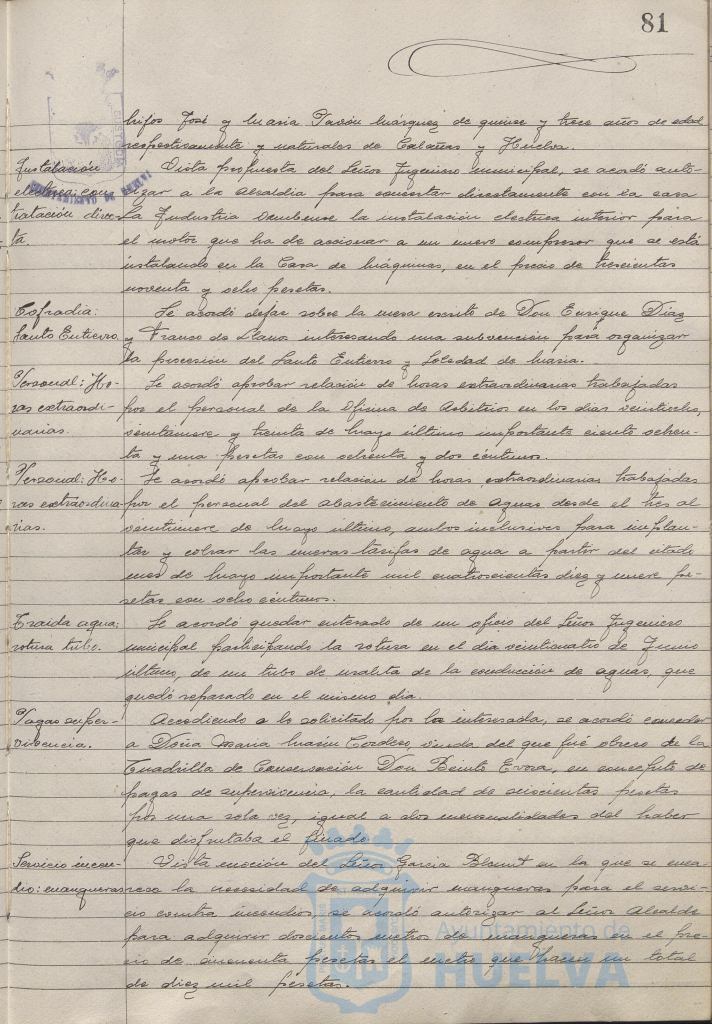 81
hijos José y María Pavón Márquez de quince y trece años de edad
respectivamente y naturales de Calañas y Huelva.
Instalación
eléctrica: con-
tratación direc-
ta.
Vista propuesta del Señor Ingeniero municipal, se acordó auto-
rizar a la Alcaldía para concertar directamente con la casa
La Industria Onubense la instalación eléctrica interior para
el motor que ha de accionar a un nuevo compresor que se está
instalando en la Casa de Máquinas, en el precio de trescientas
noventa y ocho pesetas.
Cofradía:
Santo Entierro.
Se acordó dejar sobre la mesa escrito de Don Enrique Díaz
y Franco de Llanos interesando una subvención para organizar
la procesión del Santo Entierro y Soledad de María.
Personal: Ho-
ras extraordi-
narias.
Se acordó aprobar relación de horas extraordinarias trabajadas
por el personal de la Oficina de Arbitrios en los días veintiocho,
veintinueve y treinta de Mayo último importante ciento ochen-
ta y una pesetas con ochenta y dos céntimos.
Personal: Ho-
ras extraordina-
rias.
Se acordó aprobar relación de horas extraordinarias trabajadas
por el personal del abastecimiento de aguas desde el tres al
veintinueve de Mayo último, ambos inclusives para implan-
tar y cobrar las nuevas tarifas de agua a partir del citado
mes de Mayo importante mil cuatrocientas diez y nueve pe-
setas con ocho céntimos.
Traida agua:
rotura tubo.
Se acordó quedar enterado de un oficio del Señor Ingeniero
municipal participando la rotura en el día veinticuatro de Junio
último, de un tubo de uralita de la conducción de aguas, que
quedó reparado en el mismo día.
Pagas super-
vivencia.
Accediendo a lo solicitado por la interesada, se acordó conceder
a Doña María Marín Cordero, viuda del que fué obrero de la
Cuadrilla de Conservación Don Benito Evora, en concepto de
pagas de supervivencia, la cantidad de seiscientas pesetas
por una sola vez, igual a dos mensualidades del haber
que disfrutaba el finado.
Servicio incen-
dio: mangueras
Vista moción del Señor García in la que se enca-
rece la necesidad de adquirir mangueras para el servi-
cio contra incendios, se acordó autorizar al Señor Alcalde
para adquirir doscientos metros de mangueras en el pre-
cio de cincuenta pesetas el metro que hacen un total
de diez mil pesetas.
Ayuntamiento de
HUELVA